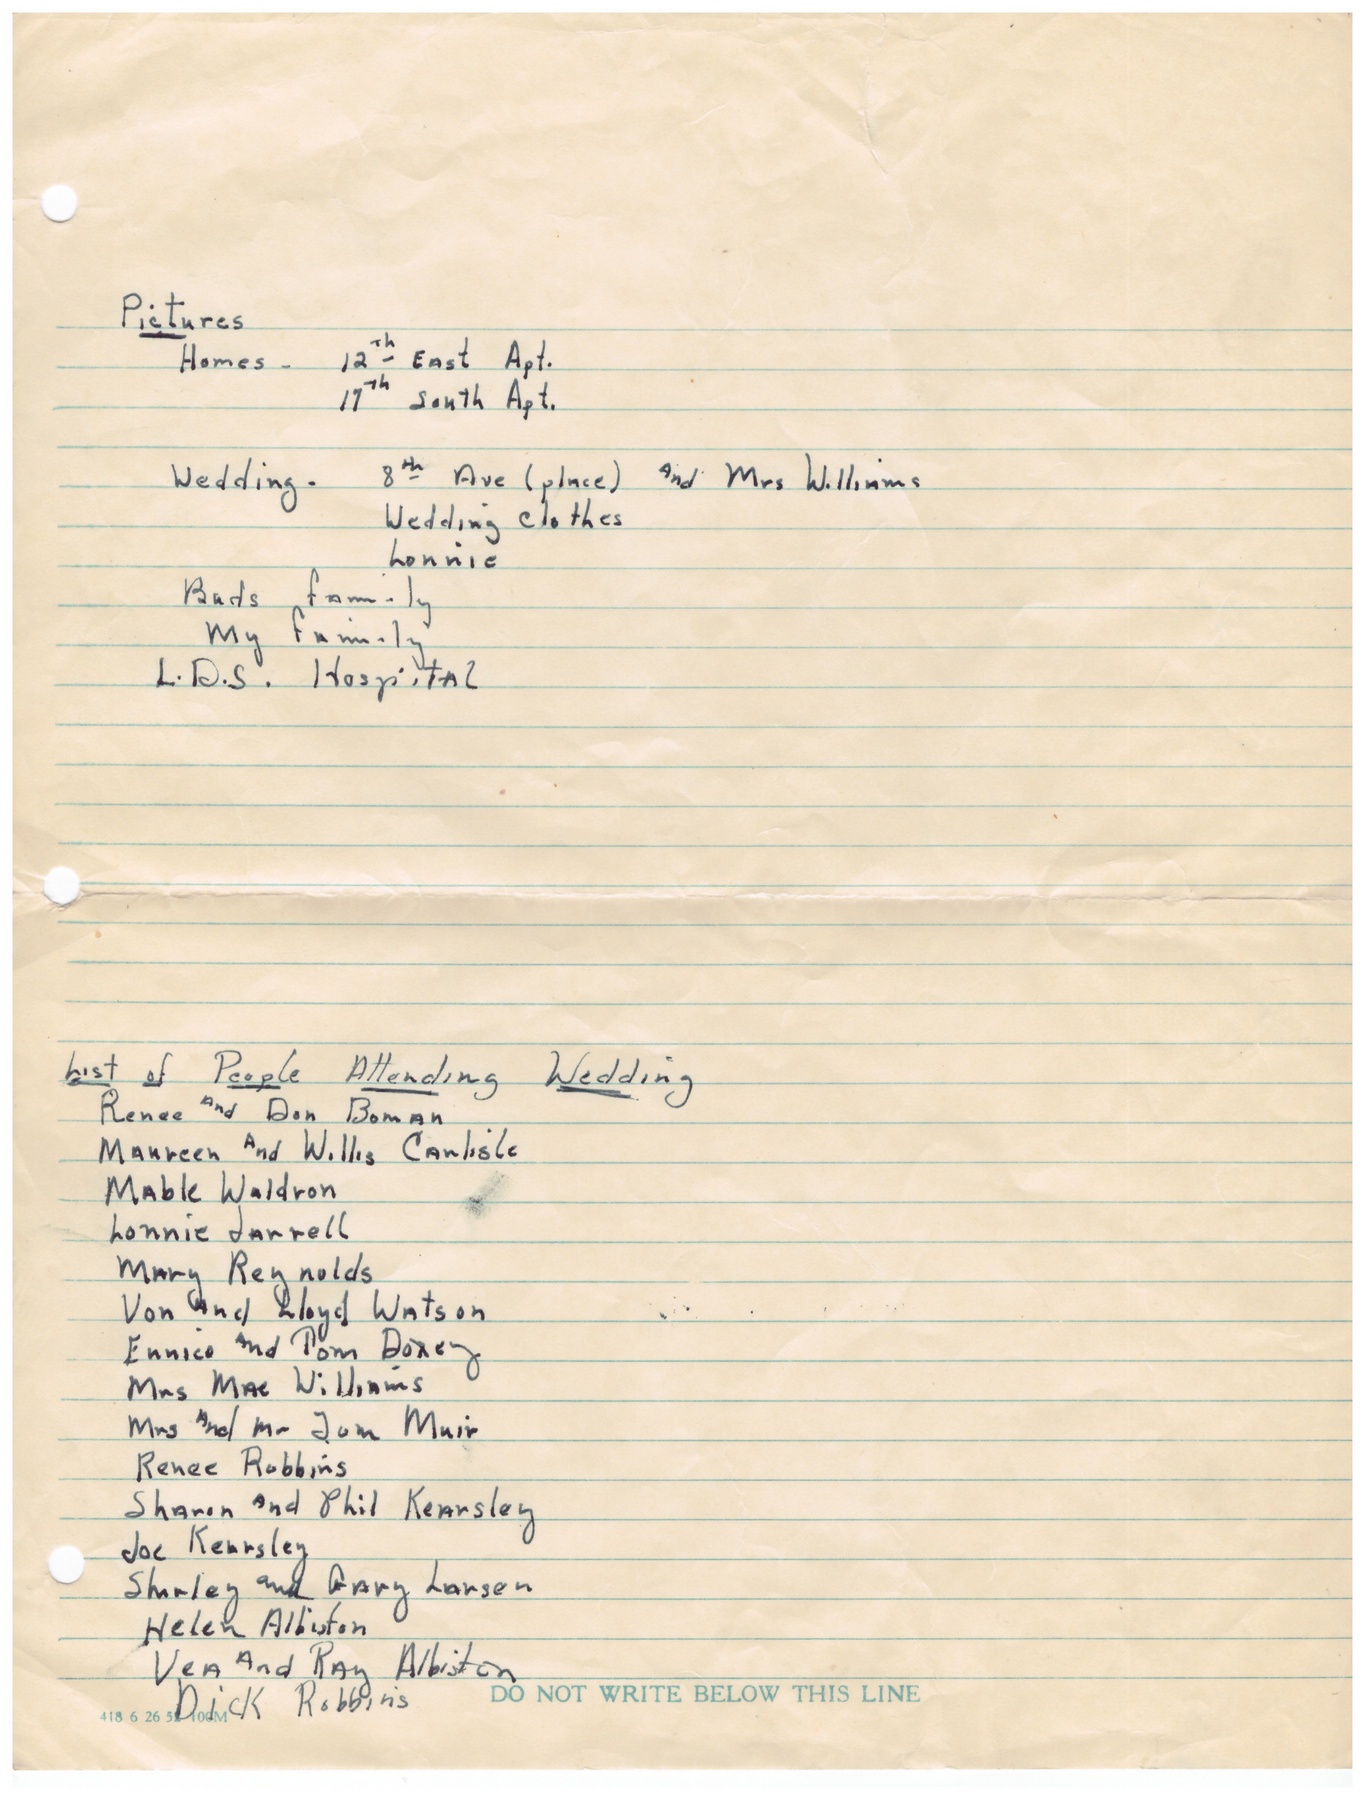 Pictures
Homes - 12th East Apt.
17th South Apt.
Wedding - 8th Ave (place) and Mrs Williams
Wedding clothes
Lonnie
Buds family
My family
L.D.S. Hospital
List of People Attending Wedding
Renee And Don Boman
Maureen And Willis Carlisle
Mable Waldron
Lonnie Jarrell
Mary Reynolds
Von And Lloyd Watson
Eunice And Tom Doxey
Mrs Mae Williams
Mrs And Mr Tom Muir
Renee Robbins
Sharon And Phil Kearsley
Joe Kearsley
Shirley and Gary Larsen
Helen Albiston
Vea And Ray Albiston
Dick Robbins
DO NOT WRITE BELOW THIS LINE
418 6 26 52 100M